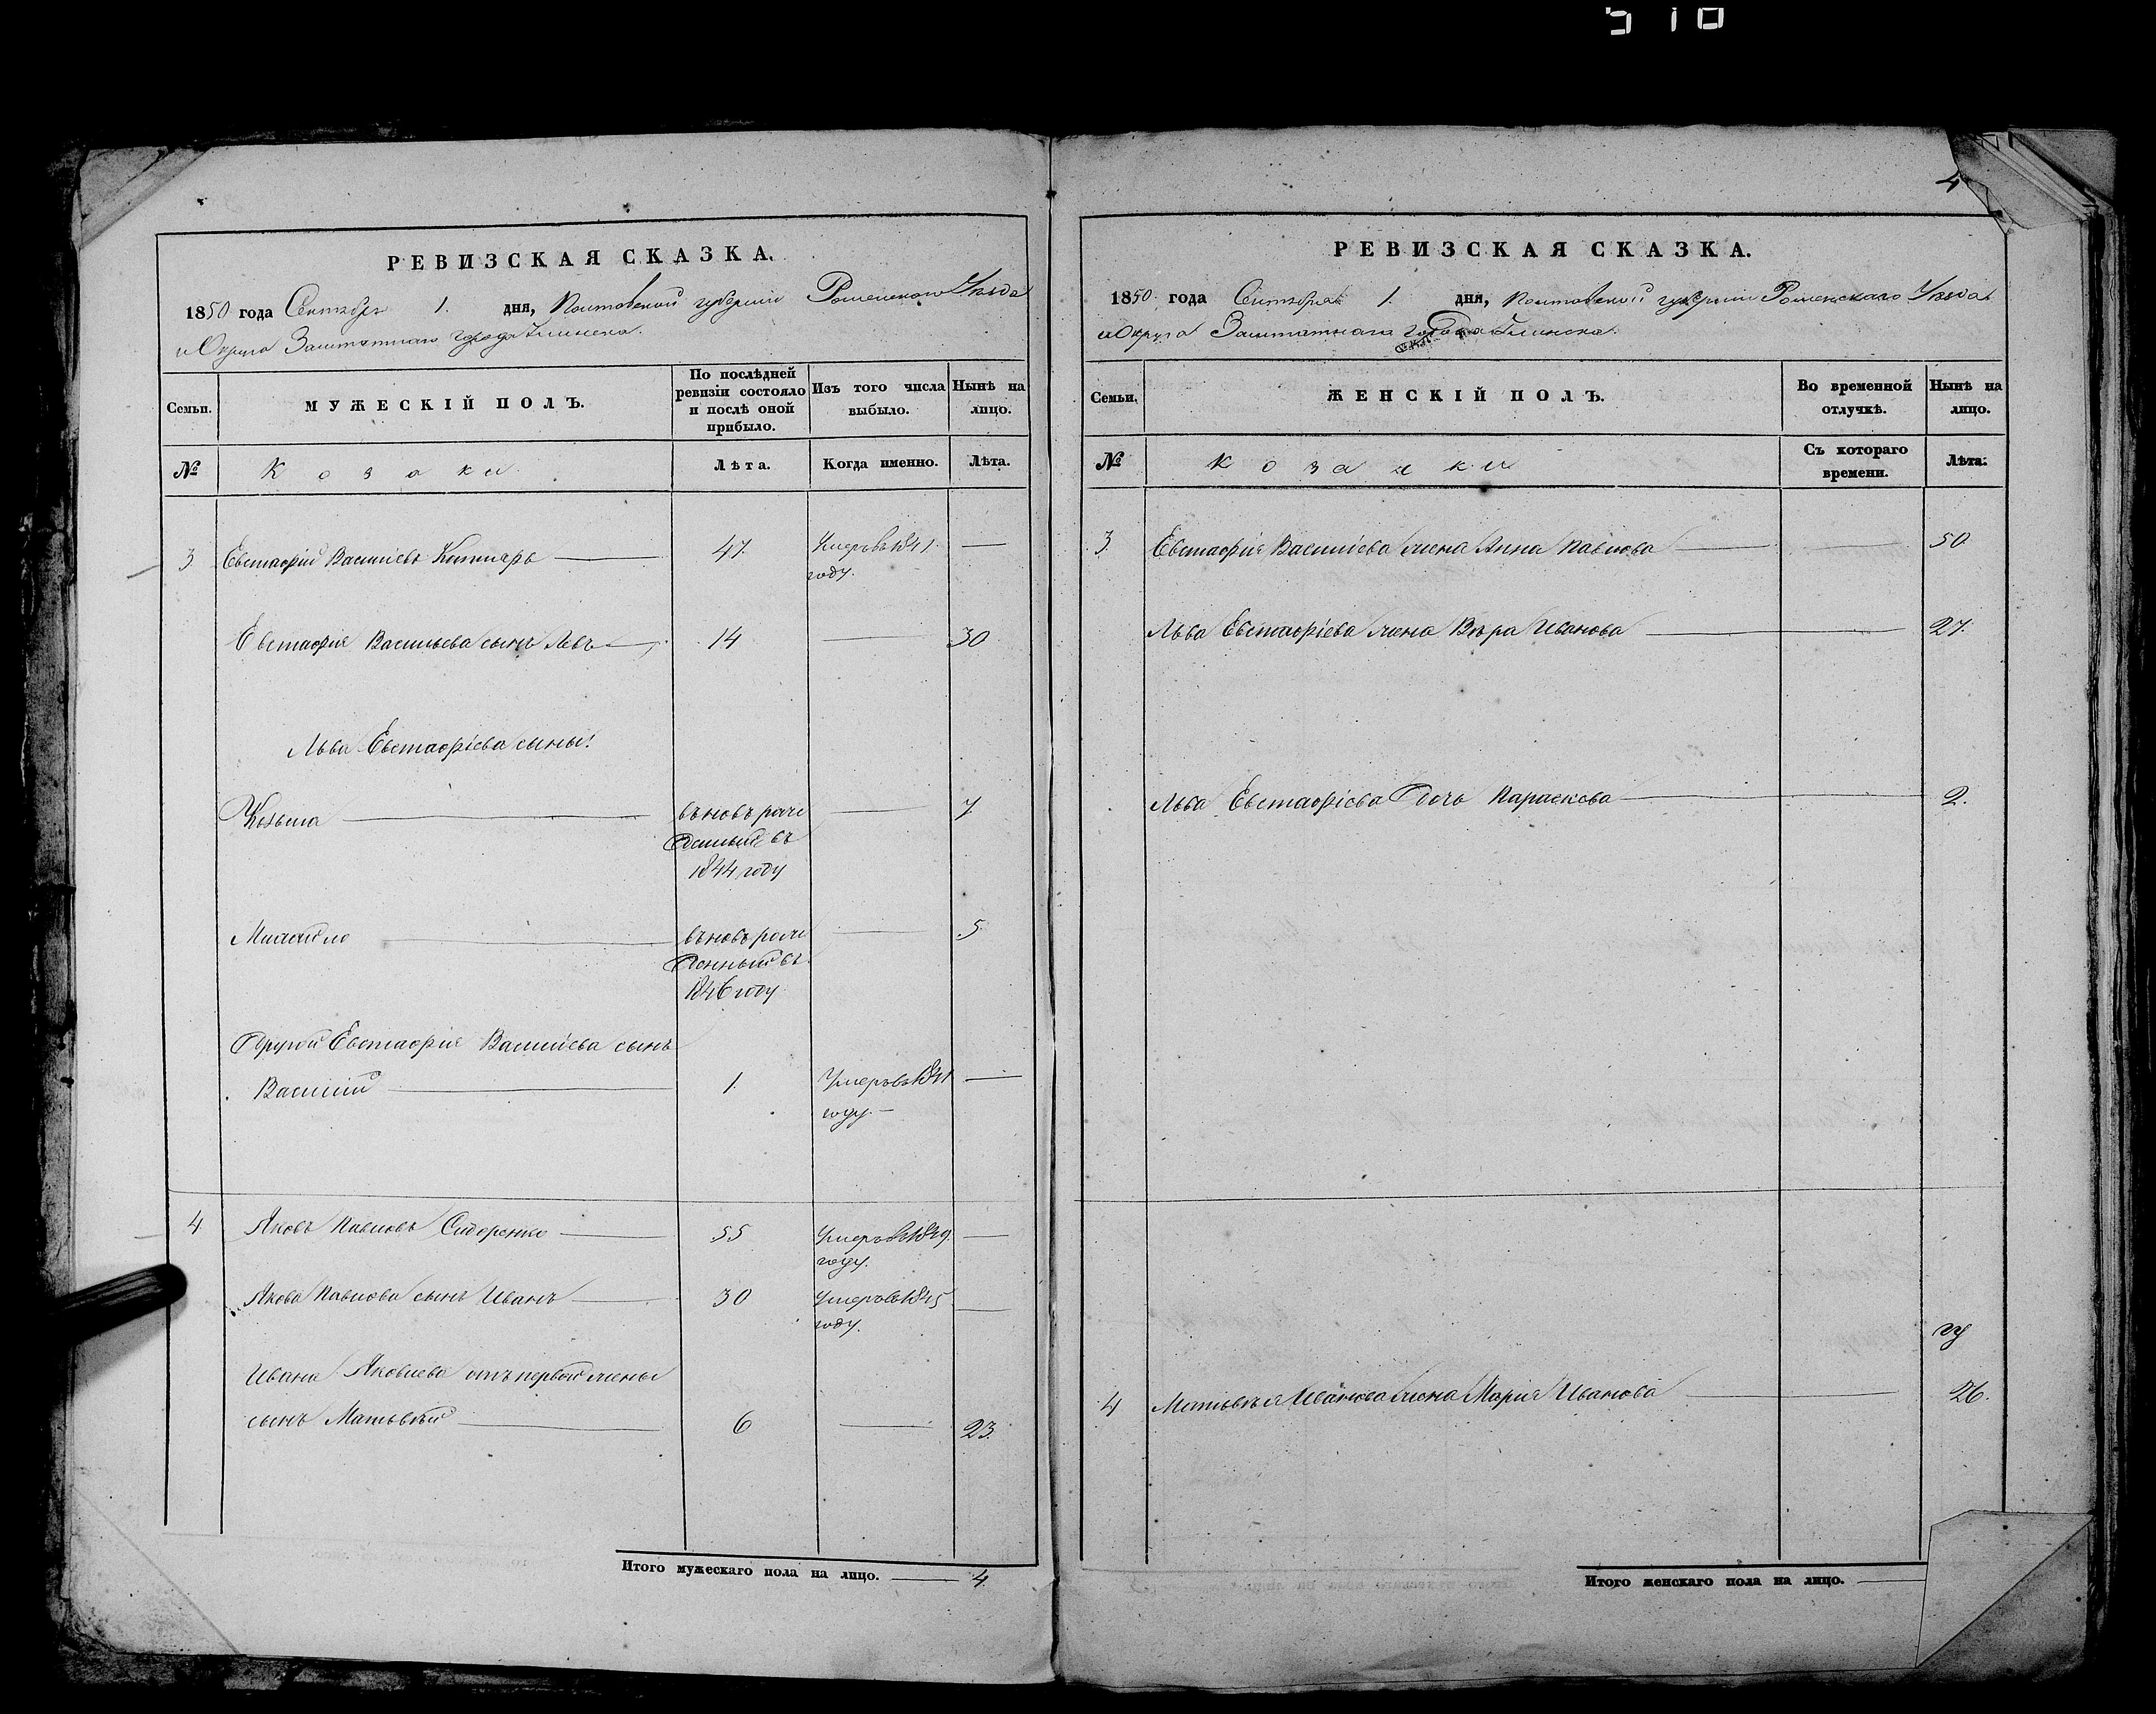 510
РЕВИЗСКАЯ СКАЗКА.
1850 года Сентября 1. дня, Полтавской губерніи Роменского Уѣзда
и Округа Заштатнаго города Глинска.
Семьи.
МУЖЕСКІЙ ПОЛЪ.
По послѣдней ревизіи состояло и послѣ оной прибыло.
Изъ того числа выбыло.
Нынѣ на лицо.
№
Козаки
Лѣта.
Когда именно.
Лѣта.
3 Евстафій Васильевъ 47. Умеръ въ 1841 —
году.
Евстафія Васильева сынъ Левъ 14 — 30
Льва Евстафіева сыны:
Козьма вновь рож 7
денный въ
1844 году
Михайло вновь рож 5
денный въ
1846 году
Другой Евстафія Васильева сынъ
Василій 1. Умеръ въ 1841 —
году. —
4 Яковъ Павловъ Сидоренко 55 Умеръ въ 1849. —
году.
Якова Павлова сынъ Иванъ 30 Умеръ въ 1845 —
году.
Ивана Яковлева отъ первой жены
сынъ Матьвѣй 6 — 23.
Итого мужескаго пола на лицо. — 4.
4
РЕВИЗСКАЯ СКАЗКА.
1850 года Сентября 1. дня, Полтавской губерніи Роменскаго Уѣзда
и Округа Заштатнаго города Глинска.
Семьи.
ЖЕНСКІЙ ПОЛЪ.
Во временной отлучкѣ.
Нынѣ на лицо.
№
Козачки
Съ котораго времени.
Лѣта.
3. Евстафія Васильева жена Анна Павлова — 50
Льва Евстафіева жена Вѣра Иванова — 27.
Льва Евстафіева дочь Параскева — 2.
4 Матьвѣя Иванова жена Марія Иванова — 26.
Итого женскаго пола на лицо. —